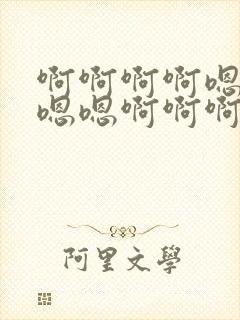 啊啊啊啊嗯
嗯嗯啊啊啊
阿里文學